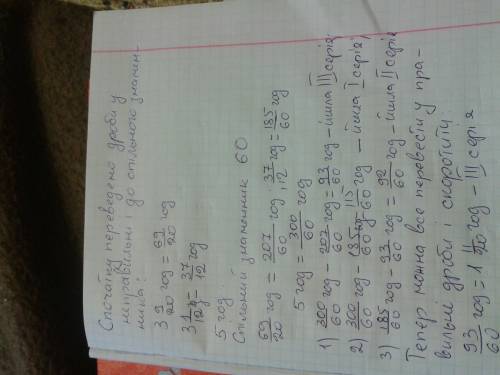 Спочатку переведемо дроби у
неправильні і до спільного знамен-
ника:
3 9/20 год = 69/20 год
3 1/12 год = 37/12 год
5 год
Спільний знаменник 60
69/20 год = 207/60 год, 37/12 год = 185/60 год
5 год = 300/60 год
1) 300/60 год - 207/60 год = 93/60 год - йшла III серія;
2) 300/60 год - 185/60 год = 115/60 год - йшла I серія;
3) 185/60 год - 93/60 год = 92/60 год - йшла II серія
Тепер можна все перевести у пра-
вильні дроби і скоротити
93/60 год = 1 11/20 год - III серія